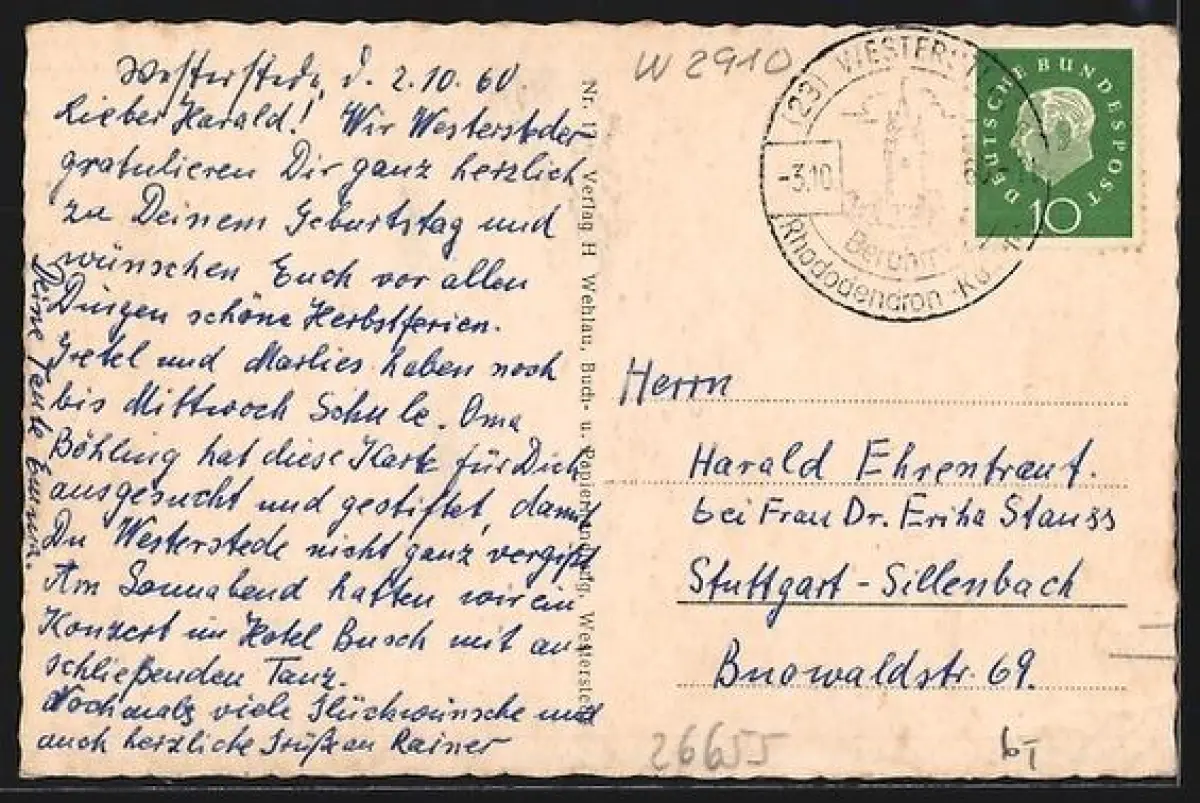 Westerstede, d. 2.10.60.
Lieber Harald! Wir Westersteder
gratulieren Dir ganz herzlich
zu Deinem Geburtstag und
wünschen Euch vor allen
Dingen schöne Herbstferien.
Gretel und Marlies haben noch
bis Mittwoch Schule. Oma
Böhling hat diese Karte für Dich
ausgesucht und gestiftet, damit
Du Westerstede nicht ganz vergißt
Am Sonnabend hatten wir ein
Konzert im Hotel Busch mit an-
schließenden Tanz.
Nochmals viele Glückwünsche und
auch herzliche Grüße an Rainer
Deine Tante
Nr. Verlag H. Wehlau, Buch- u. Westerstede
W 2910
(23) WESTERST
-3.10
Rhododendron-Ku
DEUTSCHE BUNDESPOST
10
Herrn
Harald Ehrentraut.
bei Frau Dr. Erika Stauss
Stuttgart-Sillenbach
Buowaldstr. 69.
26655